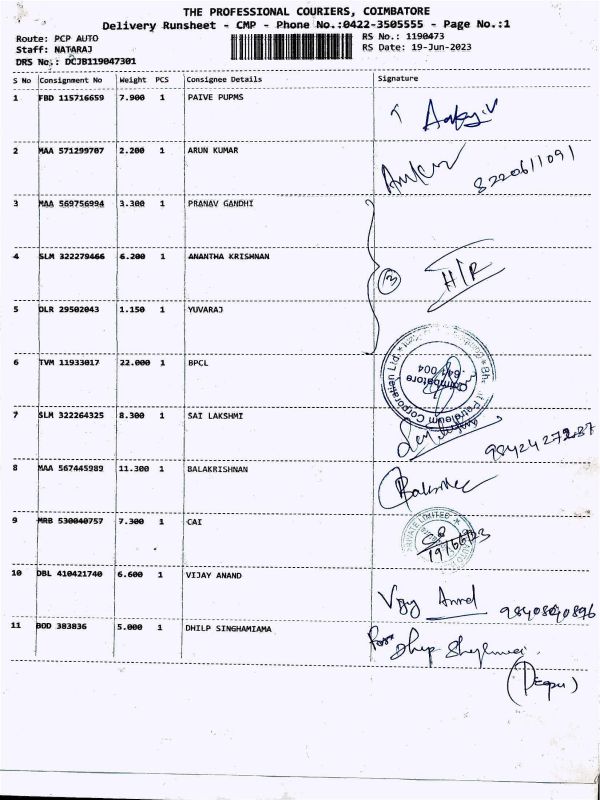 THE PROFESSIONAL COURIERS, COIMBATORE
Delivery Runsheet - CMP - Phone No.:0422-3505555 - Page No.:1
Route: PCP AUTO RS No.: 1190473
Staff: NATARAJ RS Date: 19-Jun-2023
DRS No.: DCJB119047301
S No Consignment No Weight PCS Consignee Details Signature
1 FBD 115716659 7.900 1 PAIVE PUPMS
2 MAA 571299707 2.200 1 ARUN KUMAR 8220611091
3 MAA 569756994 3.300 1 PRANAV GANDHI
4 SLM 322279466 6.200 1 ANANTHA KRISHNAN 3 H/R
5 DLR 29502043 1.150 1 YUVARAJ
6 TVM 11933017 22.000 1 BPCL
Bharat Petroleum Corporation Ltd.
Coimbatore
641 004
7 SLM 322264325 8.300 1 SAI LAKSHMI
8 MAA 567445989 11.300 1 BALAKRISHNAN
9 MRB 530040757 7.300 1 CAI
PRIVATE LIMITED
10 DBL 410421740 6.600 1 VIJAY ANAND Vijay Anand
11 BOD 383836 5.000 1 DHILP SINGHAMIAMA